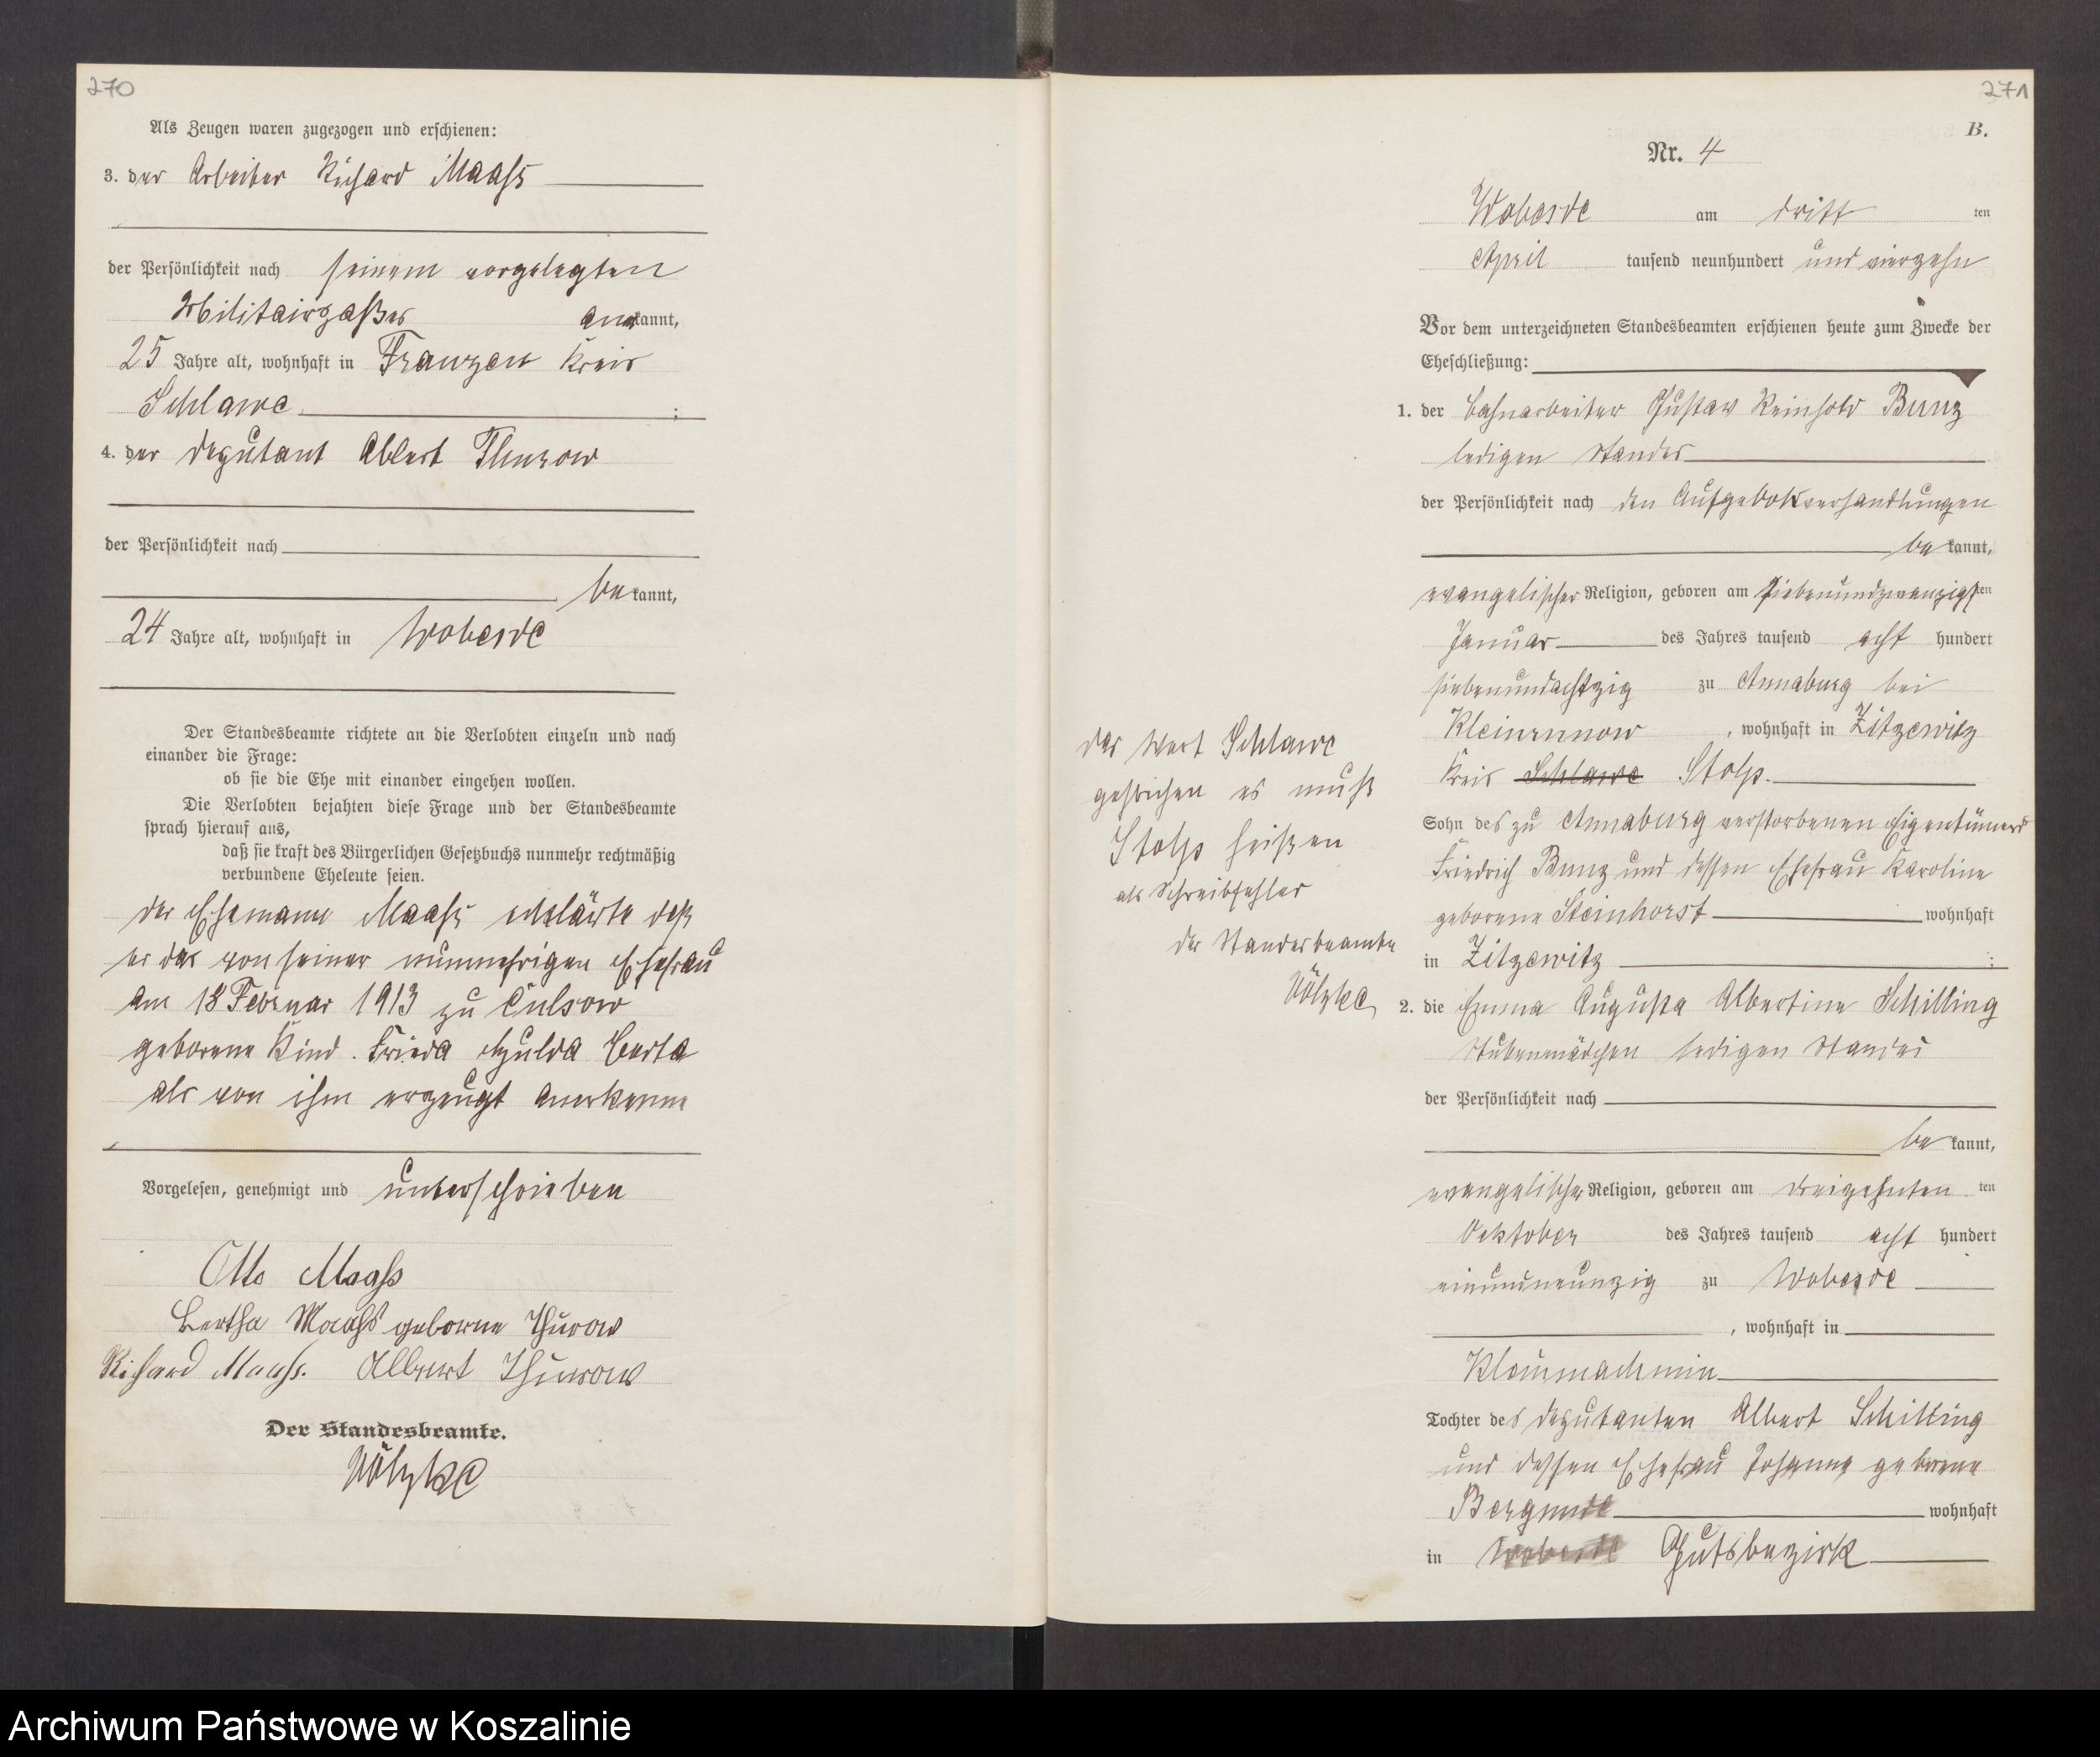 270
Als Zeugen waren zugezogen und erschienen:
3. der Arbeiter Richard Maahs
der Persönlichkeit nach seinem vorgelegten
Militairpaßes anerkannt,
25 Jahre alt, wohnhaft in Franzen Kreis
Schlawe ;
4. der Deputant Albert Thurow
der Persönlichkeit nach
bekannt,
24 Jahre alt, wohnhaft in Wobesde
Der Standesbeamte richtete an die Verlobten einzeln und nach
einander die Frage:
ob sie die Ehe mit einander eingehen wollen.
Die Verlobten bejahten diese Frage und der Standesbeamte
sprach hierauf aus,
daß sie kraft des Bürgerlichen Gesetzbuchs nunmehr rechtmäßig
verbundene Eheleute seien.
der Ehemann Maahs erklärte daß
er das von seiner nunmehrigen Ehefrau
am 18 Februar 1913 zu Culsow
geborene Kind Frieda Hulda Berta
als von ihm erzeugt anerkenne
Vorgelesen, genehmigt und unterschrieben
Otto Maahs
Bertha Maahs geborne Thurow
Richard Maahs. Albert Thurow
Der Standesbeamte.
Völzke
271
B.
Nr. 4
Wobesde am dritt ten
April tausend neunhundert und vierzehn
Vor dem unterzeichneten Standesbeamten erschienen heute zum Zwecke der
Eheschließung:
1. der Bahnarbeiter Gustav Reinhold Bunz
ledigen Standes
der Persönlichkeit nach den Aufgebotsverhandlungen
bekannt,
evangelischer Religion, geboren am siebenundzwanzigsten
Januar des Jahres tausend acht hundert
siebenundachtzig zu Annaburg bei
, wohnhaft in Zitzewitz
Kreis Schlawe Stolp.
Sohn des zu Annaburg verstorbenen Eigentümers
Friedrich Bunz und dessen Ehefrau Karoline
geborene Steinhorst wohnhaft
in Zitzewitz ;
das Wort Schlawe
gestrichen es muß
Stolp heißen
als Schreibfehler
der Standesbeamte
Völzke
2. die Emma Augusta Albertine Schilling
Stubenmädchen ledigen Standes
der Persönlichkeit nach
bekannt,
evangelischer Religion, geboren am dreizehnten ten
Oektober des Jahres tausend acht hundert
einundneunzig zu Wobesde
, wohnhaft in
Kleinmachmin
Tochter des Deputanten Albert Schilling
und dessen Ehefrau Johanna geborene
wohnhaft
in Wobesde Gutsbezirk
Archiwum Państwowe w Koszalinie